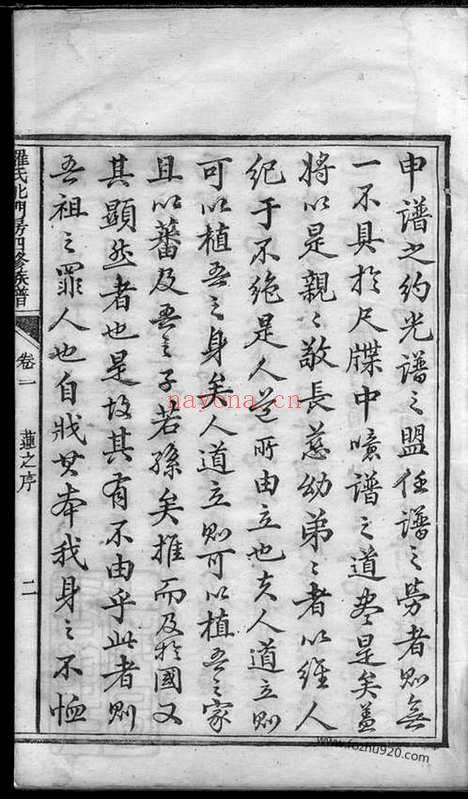 申譜之約光譜之盟任譜之勞者則無
一不具於尺牒中噫譜之道盡是矣蓋
將以是親〻敬長慈幼弟〻者以維人
紀于不絶是人道所由立也夫人道立則
可以植吾之身矣人道立則可以植吾之家
且以蕃及吾之子若孫矣推而及於國又
其顯然者也是故其有不由乎此者則
吾祖之罪人也自戕其本我身之不恤
羅氏北門房四修族譜
卷一
蓮之序
二
nayona.cn
www.fozhu920.com